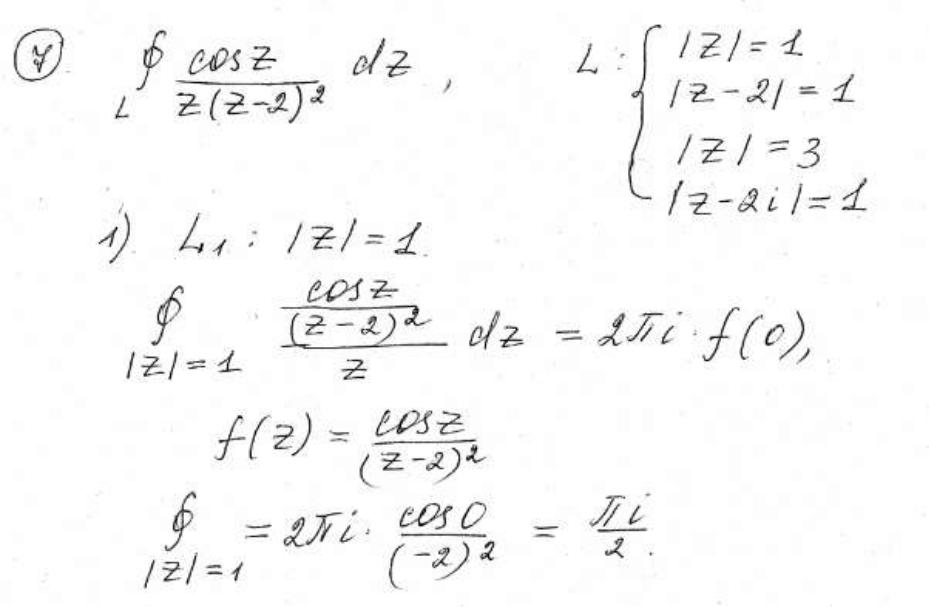 7 ∮_L cosz / (z(z-2)²) dz , L: { |z|=1
|z-2|=1
|z|=3
|z-2i|=1
1). L₁: |z|=1.
∮_{|z|=1} (cosz / (z-2)²) / z dz = 2πi·f(0),
f(z) = cosz / (z-2)²
∮_{|z|=1} = 2πi· cos0 / (-2)² = πi / 2.